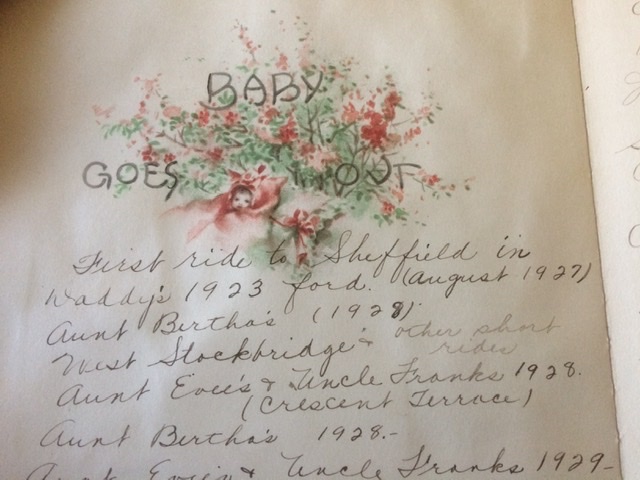 BABY
GOES OUT
First ride to Sheffield in
Waddy's 1923 ford. (August 1927)
Aunt Bertha's (1928)
West Stockbridge & other short
rides
Aunt Evie's & Uncle Franks 1928.
(Crescent Terrace)
Aunt Bertha's 1928.-
Aunt Evie's & Uncle Franks 1929-